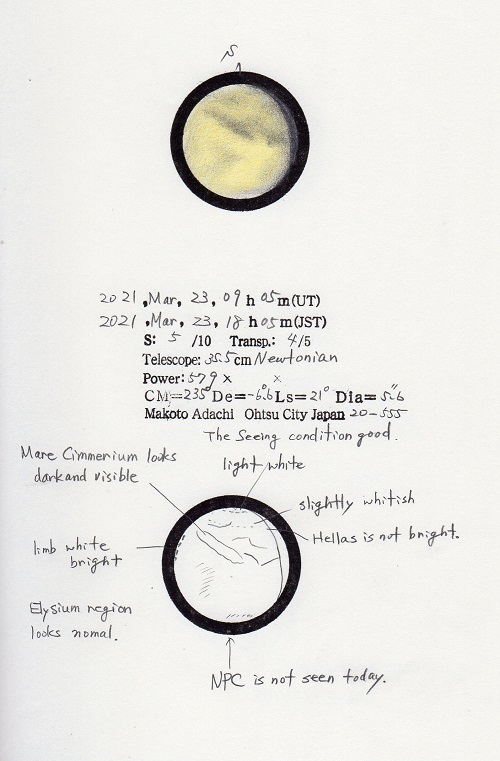 S
2021, Mar, 23, 09 h 05 m (UT)
2021, Mar, 23, 18 h 05 m (JST)
S: 5 /10 Transp.: 4/5
Telescope: 35.5 cm Newtonian
Power: 579 × ×
CM=235° De=-6.6° Ls=21° Dia=5.6"
Makoto Adachi Ohtsu City Japan 20-555
The Seeing condition good.
Mare Cimmerium looks
dark and visible
light white
slightly whitish
Hellas is not bright.
limb white
bright
Elysium region
looks nomal.
NPC is not seen today.